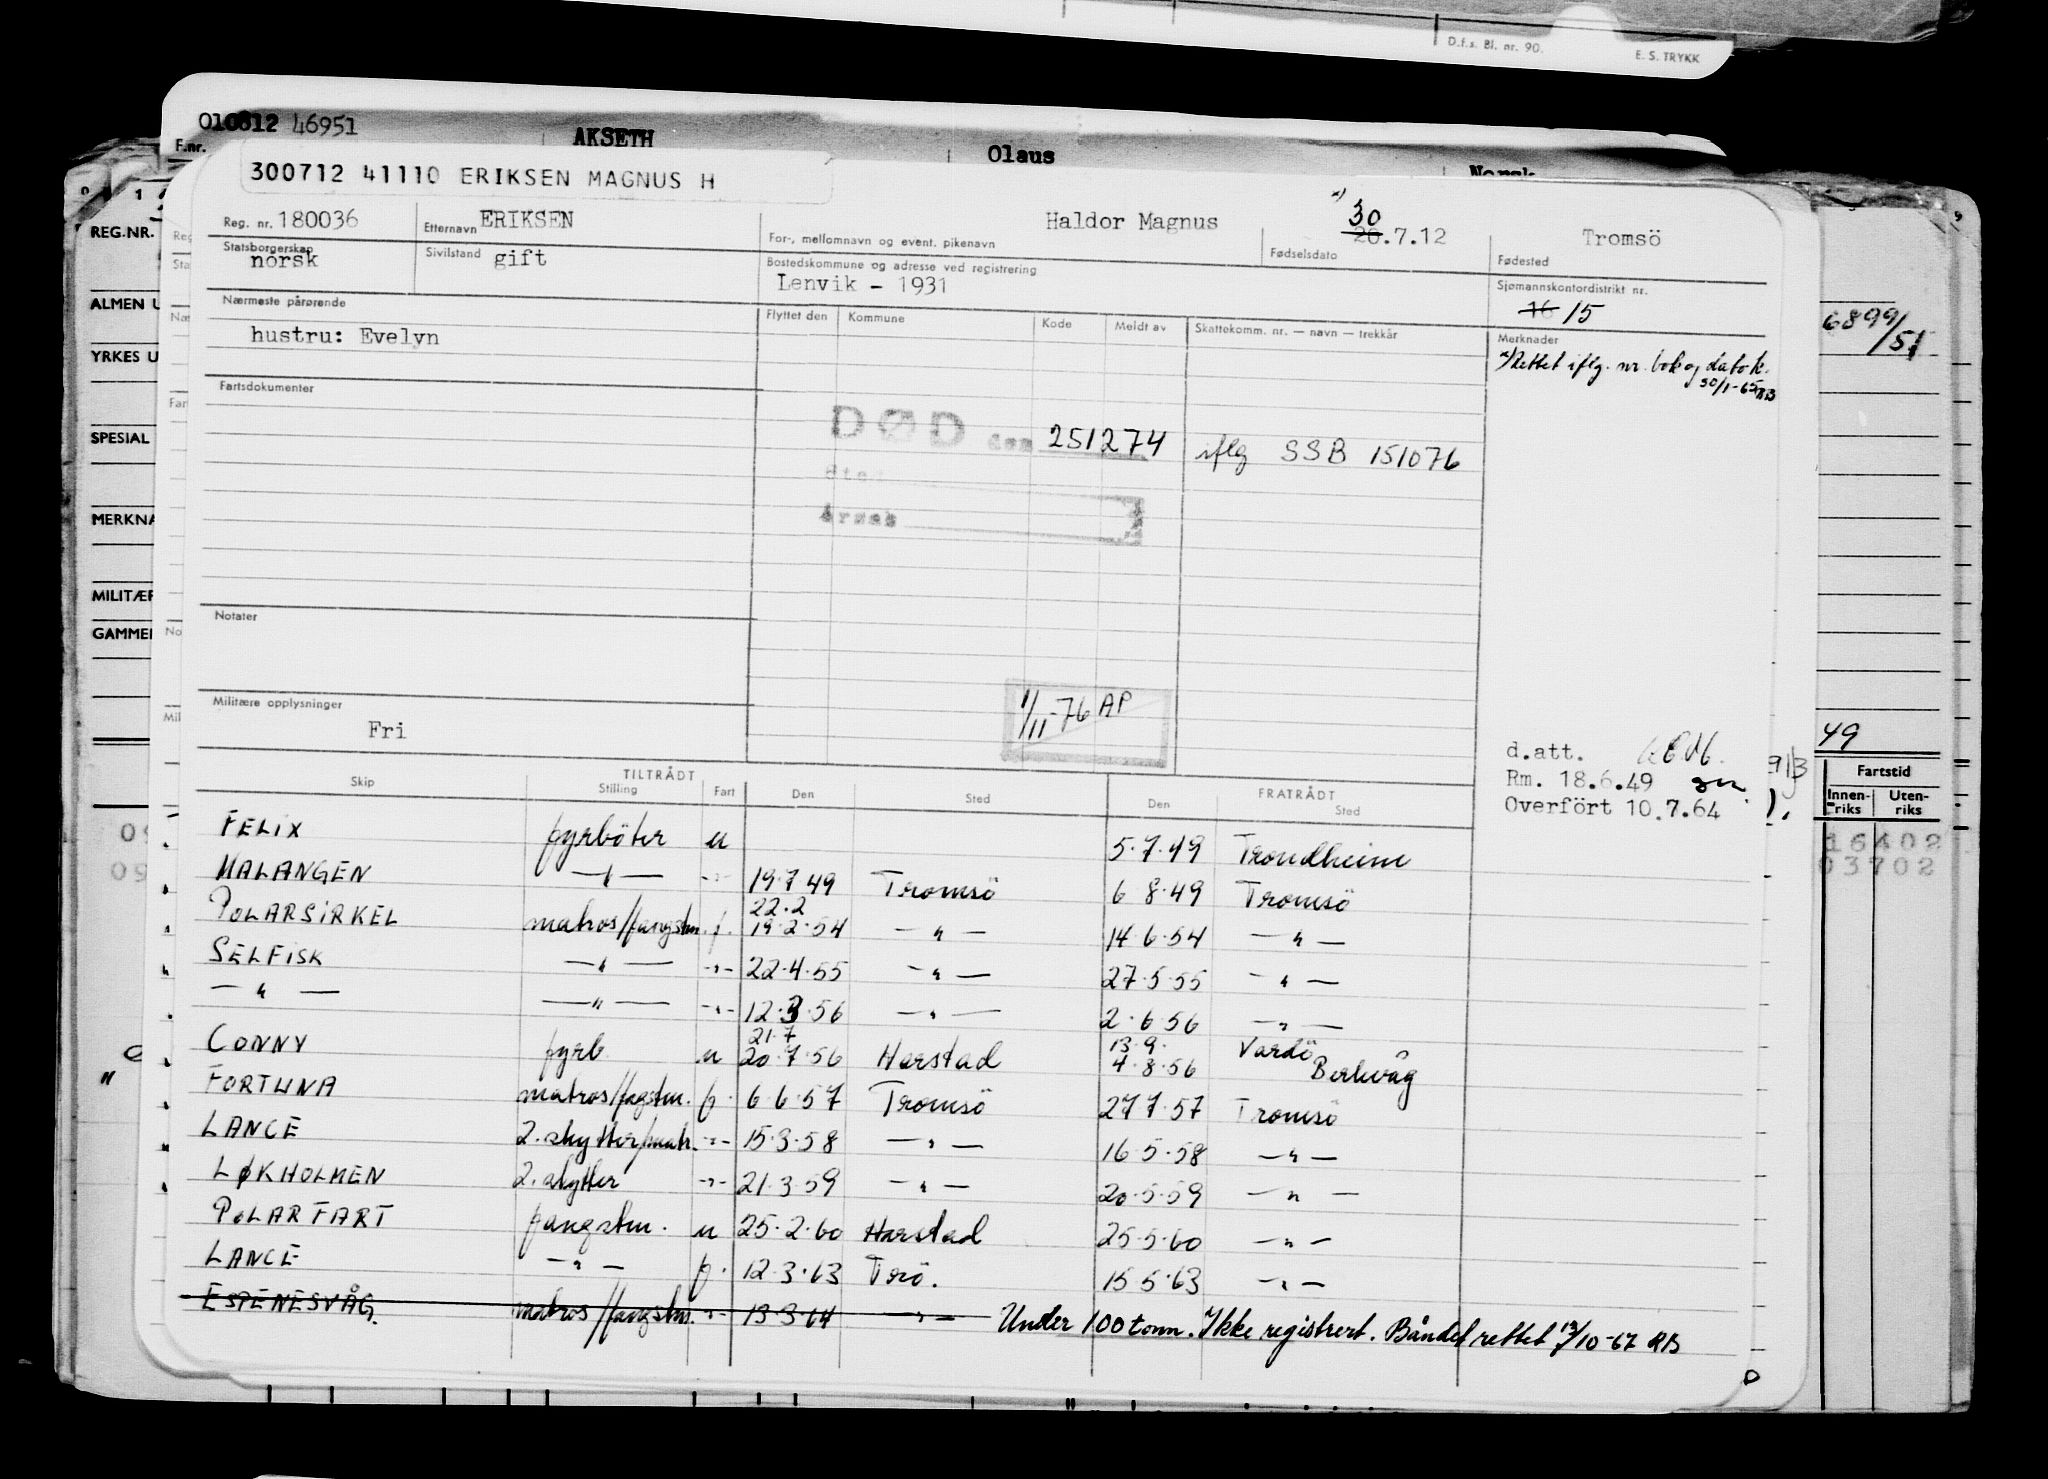 D.f.s. Bl. nr. 90.
E. S. TRYKK
010812 46951
F.nr.
AKSETH
Olaus
Norsk
300712 41110 ERIKSEN MAGNUS H
Reg. nr. 180036
Etternavn ERIKSEN
For-, mellomnavn og event. pikenavn
Haldor Magnus
x) 30
20.7.12
Fødselsdato
Tromsö
Fødested
Statsborgerskap
norsk
Sivilstand gift
Bostedskommune og adresse ved registrering
Lenvik - 1931
Sjømannskontordistrikt nr.
16 15
Nærmeste pårørende
hustru: Evelyn
Flyttet den
Kommune
Kode
Meldt av
Skattekomm. nr. — navn — trekkår
Merknader
x) Rettet iflg. nr. bok og datok.
30/1-65 RB
Fartsdokumenter
DØD den 251274 iflg SSB 151076
Sted
Årsak
Notater
Militære opplysninger
Fri
1/11-76 AP
d.att.
Rm. 18.6.49
Overfört 10.7.64
TILTRÅDT
FRATRÅDT
Skip
Stilling
Fart
Den
Sted
Den
Sted
FELIX fyrböter u 5.7.49 Trondheim
MALANGEN —"— -"- 19.7 49 Tromsö 6 8.49 Tromsö
22.2
POLARSIRKEL matros/fangstm. f. 19.2.54 —"— 14.6.54 —"—
SELFISK —"— -"- 22.4.55 —"— 27.5.55 —"—
—"— —"— -"- 12.3.56 —"— 2.6.56 —"—
21.7 13.9. Vardö
CONNY fyrb. u 20.7.56 Harstad 4.8.56 Berlevåg
FORTUNA matros/fagstm. f. 6.6.57 Tromsö 27 7.57 Tromsö
LANCE 2. skytter/matr. -"- 15.3.58 —"— 16.5.58 —"—
LØKHOLMEN 2. skytter -"- 21.3.59 —"— 20.5.59 —"—
POLARFART fangstm. u 25.2.60 Harstad 25.5.60 —"—
LANCE —"— f. 12.3.63 Trö. 15 5.63 —"—
ESPENESVÅG. matros/fangstm. -"- 13.3.64 —"— Under 100 tonn. Ikke registrert. Båndet rettet 13/10-67 RB
REG.NR.
ALMEN U
YRKES U
SPESIAL
MERKNA
MILITÆR
GAMMEL
6899/51
49
Fartstid
Innen-riks
Uten-riks
16402
03702